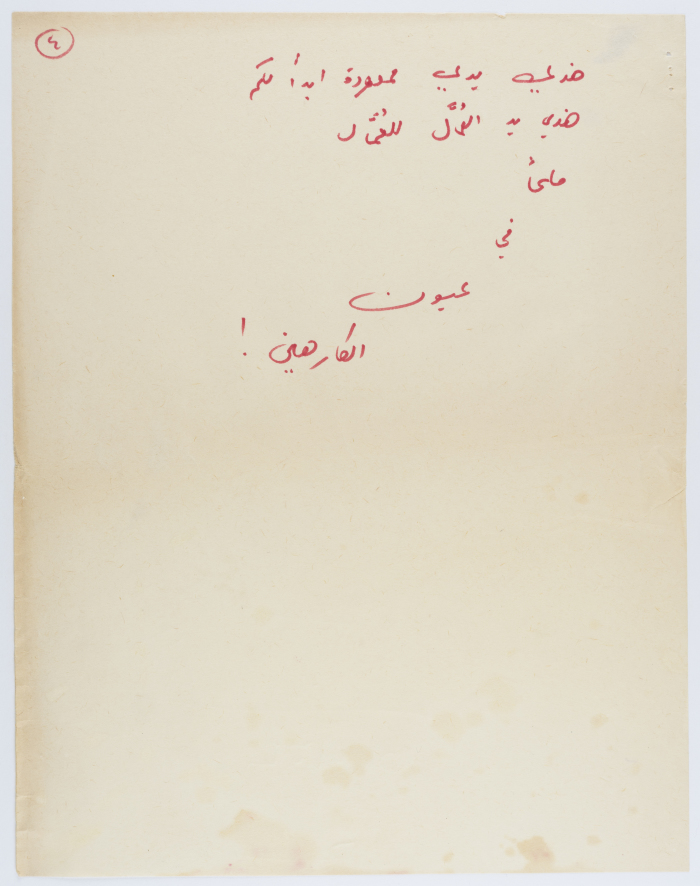 ٤
هذي يدي ممدودة ابداً لكم
هذي يد العُمَّال للعُمَّال
ملحاً
في
عيون
الكارهين !